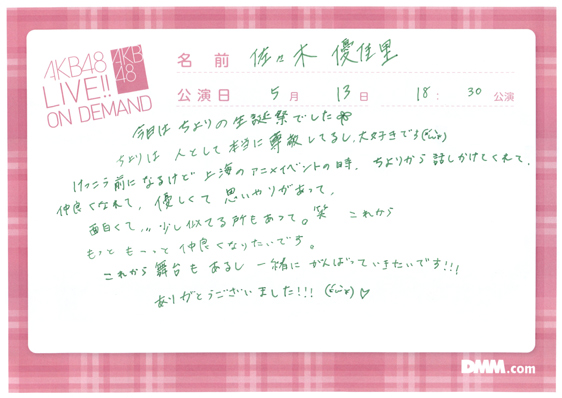 AKB48
LIVE!!
ON DEMAND
AKB
48
名前 佐々木 優佳里
公演日 5月 13日 18:30公演
今日は ちよりの生誕祭でした
ちよりは 人として本当に尊敬してるし、大好きです
けっこう前になるけど 上海のアニメイベントの時、ちよりから話しかけてくれて、
仲良くなれて、優しくて 思いやりがあって、
面白くて、、少し似てる所もあって。笑 これから
もっと もーっと 仲良くなりたいです。
これから舞台もあるし 一緒に がんばっていきたいです!!!
ありがとうございました!!! ♡
DMM.com